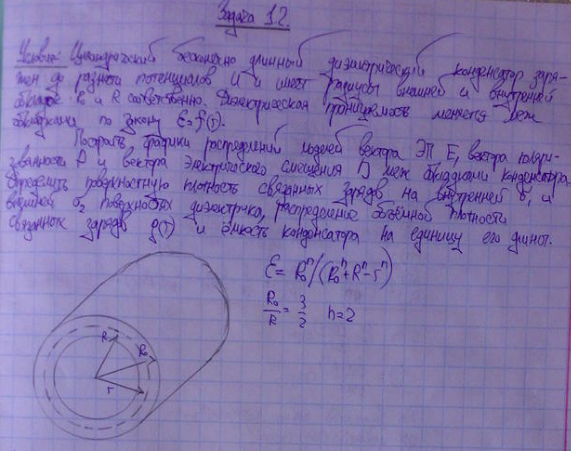 Задача 12.
Условие: Цилиндрический бесконечно длинный диэлектрический конденсатор заря-
жен до разности потенциалов U и имеет радиусы внешней и внутренней
обкладок R₀ и R соответственно. Диэлектрическая проницаемость меняется меж
обкладками по закону ε=f(r).
Построить графики распределений модулей вектора ЭП E, вектора поляри-
зованности P и вектора электрического смещения D меж обкладками конденсатора.
Определить поверхностную плотность связанных зарядов на внутренней σ₁ и
внешней σ₂ поверхностях диэлектрика, распределение объёмной плотности
связанных зарядов ρ(r) и ёмкость конденсатора на единицу его длины.
ε = R₀ⁿ/(R₀ⁿ+Rⁿ-rⁿ)
R₀/R = 3/2 n=2
R
R₀
r